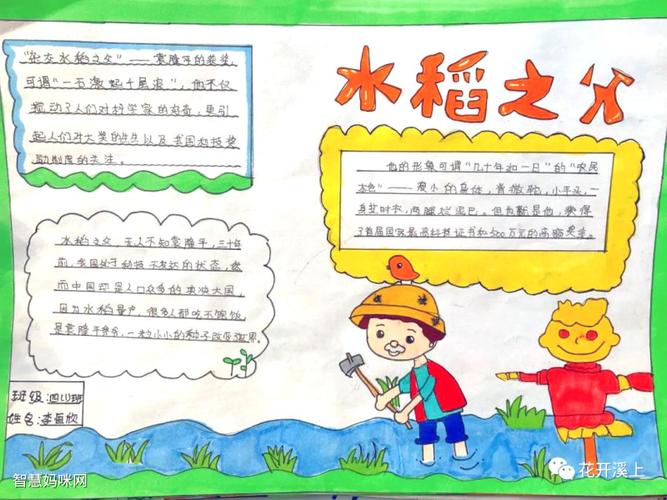 水稻之父
"杂交水稻之父"——袁隆平的获奖,
可谓"一石激起千层浪",他不仅
搅动了人们对科学家的好奇,更引
起人们对大奖的产生以及我国科技奖
励制度的关注。
他的形象可谓"几十年如一日"的"农民
本色"——瘦小的身体,背微驼,小平头,一
身旧衣,两腿泥巴。但也就是他,获得
了首届国家最高科技证书和500万元的高额奖金。
水稻之父,无人不知袁隆平,三十年
前,我国处于科技不发达的状态,然
而中国却是人口众多的泱泱大国,
因为水稻量少,很多人都吃不饱饭,
是袁隆平爷爷,一粒小小的种子改变世界。
班级:四(1)班
姓名:李
智慧妈咪网
花开溪上